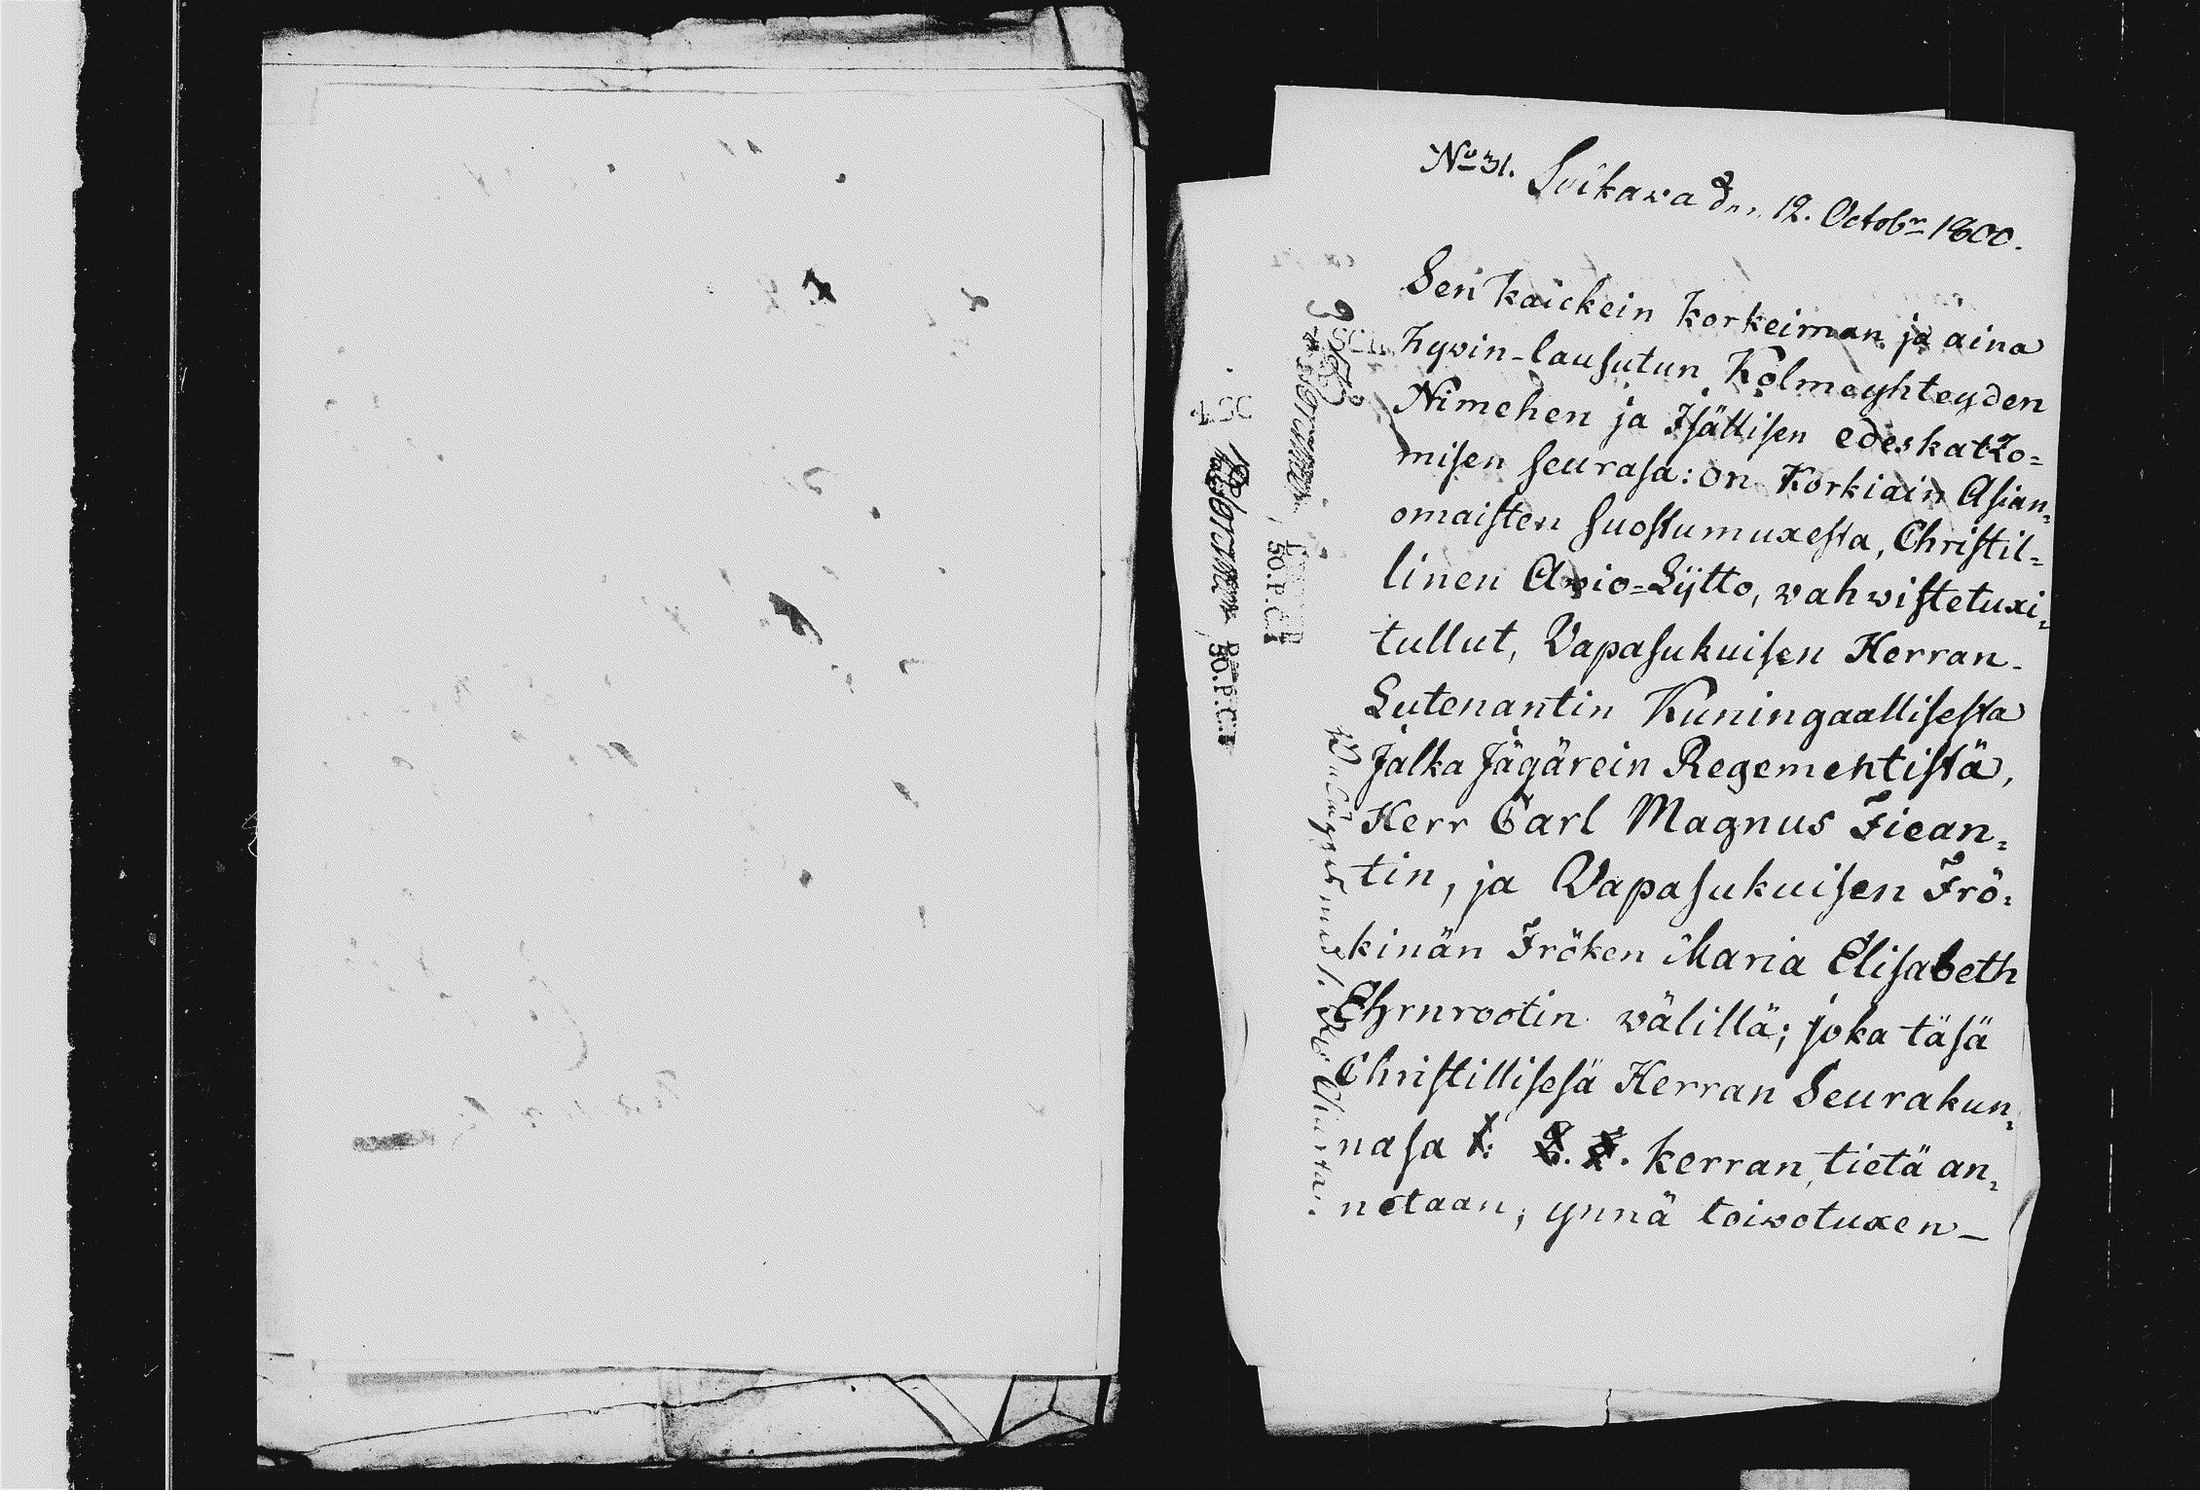 No 31. Soikawa den 12. Octobr 1800.
Sen kaickein korkeiman ja aina
hywin-lausutun Kolmeyhteyden
Nimehen ja Isällisen edeskatzo=
misen seurasa: on Korkiain Asian=
omaisten suostumuxesta, Christil=
linen Awio=Lijtto, wahwistetuxi=
tullut, Vapasukuisen Herran-
Lutenantin Kuningaallisesta
Jalka Jägärein Regementistä,
Herr Carl Magnus Fiean=
tin, ja Vapasukuisen Frö=
kinän Fröken Maria Elisabeth
Ehrnrootin wälillä; joka täsä
Christillisesä Herran Seurakun=
nasa 1. 2. 3. kerran tietä an=
netaan, ynnä toiwotuxen_
4 SC
50.P.C.
50.P.C.